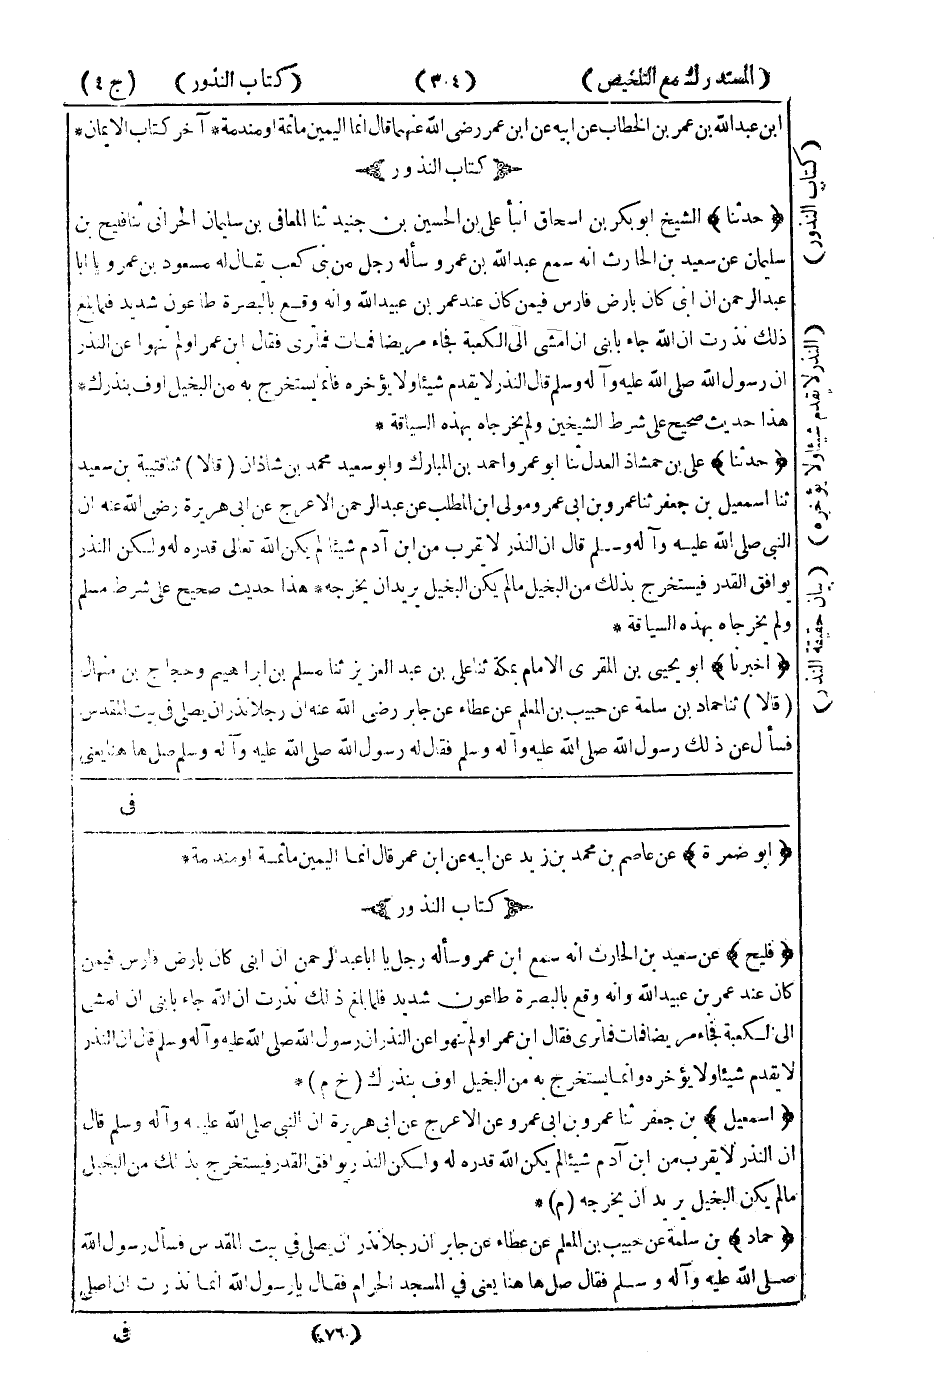 (المستدرك مع التلخيص) (٣٠٤) (كتاب النذور) (ج ٤)
ابن عبدالله بن عمر بن الخطاب عن ابيه عن ابن عمر رضى الله عنهما قال انما اليمين مأثمة او مندمة * آخر كتاب الايمان *
كتاب النذور
﴿ حدثنا ﴾ الشيخ ابو بكر بن اسحاق انبأ على بن الحسين بن جنيد ثنا المعافى بن سليمان الحرانى ثنا فليح بن
سليمان عن سعيد بن الحارث انه سمع عبدالله بن عمر و سأله رجل من بنى كعب يقال له مسعود بن عمرو يا ابا
عبدالرحمن ان ابنى كان بارض فارس فيمن كان عند عمر بن عبيدالله وانه وقع بالبصرة طاعون شديد فلما بلغ
ذلك نذرت ان الله جاء بابنى ان امشى الى الكعبة فجاء مريضا فمات فما ترى فقال ابن عمر اولم تنهوا عن النذر
ان رسول الله صلى الله عليه وآله وسلم قال النذر لا يقدم شيئا ولا يؤخره فانما يستخرج به من البخيل اوف بنذرك *
هذا حديث صحيح على شرط الشيخين ولم يخرجاه بهذه السياقة *
﴿ حدثنا ﴾ على بن حمشاذ العدل ثنا ابو عمرو احمد بن المبارك وابو سعيد محمد بن شاذان (قالا) ثنا قتيبة بن سعيد
ثنا اسمعيل بن جعفر ثنا عمرو بن ابى عمرو مولى ابن المطلب عن عبدالرحمن الاعرج عن ابى هريرة رضى الله عنه ان
النبى صلى الله عليه وآله وسلم قال ان النذر لا يقرب من ابن آدم شيئا لم يكن الله تعالى قدره له ولكن النذر
يوافق القدر فيستخرج بذلك من البخيل ما لم يكن البخيل يريد ان يخرجه * هذا حديث صحيح على شرط مسلم
ولم يخرجاه بهذه السياقة *
﴿ اخبرنا ﴾ ابو يحيى بن المقرى الامام بمكة ثنا على بن عبد العزيز ثنا مسلم بن ابراهيم وحجاج بن منهال
(قالا) ثنا حماد بن سلمة عن حبيب بن المعلم عن عطاء عن جابر رضى الله عنه ان رجلا نذر ان يصلى فى بيت المقدس
فسأل عن ذلك رسول الله صلى الله عليه وآله وسلم فقال له رسول الله صلى الله عليه وآله وسلم صل ها هنا يعنى
فى
(كتاب النذور) (النذر لا يقدم شيئا ولا يؤخره) (بيان حقيقة النذر)
﴿ ابو ضمرة ﴾ عن عاصم بن محمد بن زيد عن ابيه عن ابن عمر قال انما اليمين مأثمة او مندمة *
كتاب النذور
﴿ فليح ﴾ عن سعيد بن الحارث انه سمع ابن عمر وسأله رجل يا ابا عبدالرحمن ان ابنى كان بارض فارس فيمن
كان عند عمر بن عبيدالله وانه وقع بالبصرة طاعون شديد فلما بلغ ذلك نذرت ان الله جاء بابنى ان امشى
الى الكعبة فجاء مريضا فمات فما ترى فقال ابن عمر اولم تنهوا عن النذر ان رسول الله صلى الله عليه وآله وسلم قال ان النذر
لا يقدم شيئا ولا يؤخره وانما يستخرج به من البخيل اوف بنذرك (خ م) *
﴿ اسمعيل ﴾ بن جعفر ثنا عمرو بن ابى عمرو عن الاعرج عن ابى هريرة ان النبى صلى الله عليه وآله وسلم قال
ان النذر لا يقرب من ابن آدم شيئا لم يكن الله قدره له ولكن النذر يوافق القدر فيستخرج بذلك من البخيل
ما لم يكن البخيل يريد ان يخرجه (م) *
﴿ حماد ﴾ بن سلمة عن حبيب بن المعلم عن عطاء عن جابر ان رجلا نذر ان يصلى فى بيت المقدس فسأل رسول الله
صلى الله عليه وآله وسلم فقال صل ها هنا يعنى فى المسجد الحرام فقال يا رسول الله انما نذرت ان اصلى
(٧٦) فى